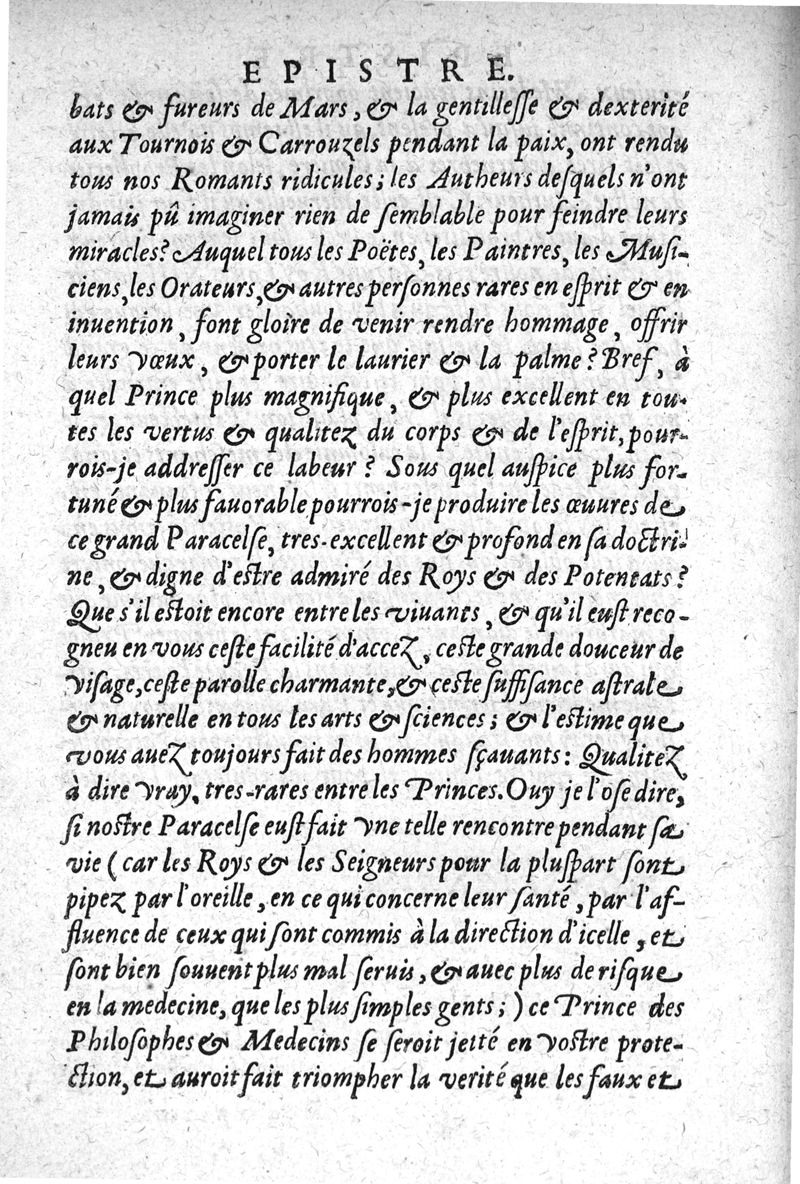 EPISTRE.
bats & fureurs de Mars, & la gentillesse & dexterité
aux Tournois & Carrouzels pendant la paix, ont rendu
tous nos Romants ridicules; les Autheurs desquels n'ont
jamais pû imaginer rien de semblable pour feindre leurs
miracles? Auquel tous les Poëtes, les Paintres, les Musi-
ciens, les Orateurs, & autres personnes rares en esprit & en
inuention, font gloire de venir rendre hommage, offrir
leurs vœux, & porter le laurier & la palme? Bref, à
quel Prince plus magnifique, & plus excellent en tou-
tes les vertus & qualitez du corps & de l'esprit, pour-
rois-je addresser ce labeur? Sous quel auspice plus for-
tuné & plus fauorable pourrois-je produire les œuures de
ce grand Paracelse, tres-excellent & profond en sa doctri-
ne, & digne d'estre admiré des Roys & des Potentats?
Que s'il estoit encore entre les viuants, & qu'il eust reco-
gneu en vous ceste facilité d'accez, ceste grande douceur de
visage, ceste parolle charmante, & ceste suffisance astrale
& naturelle en tous les arts & sciences; & l'estime que
vous auez toujours fait des hommes sçauants: Qualitez
à dire vray, tres-rares entre les Princes. Ouy je l'ose dire,
si nostre Paracelse eust fait vne telle rencontre pendant sa
vie (car les Roys & les Seigneurs pour la pluspart sont
pipez par l'oreille, en ce qui concerne leur santé, par l'af-
fluence de ceux qui sont commis à la direction d'icelle, et
sont bien souuent plus mal seruis, & auec plus de risque
en la medecine, que les plus simples gents;) ce Prince des
Philosophes & Medecins se seroit jetté en vostre prote-
ction, et auroit fait triompher la verité que les faux et